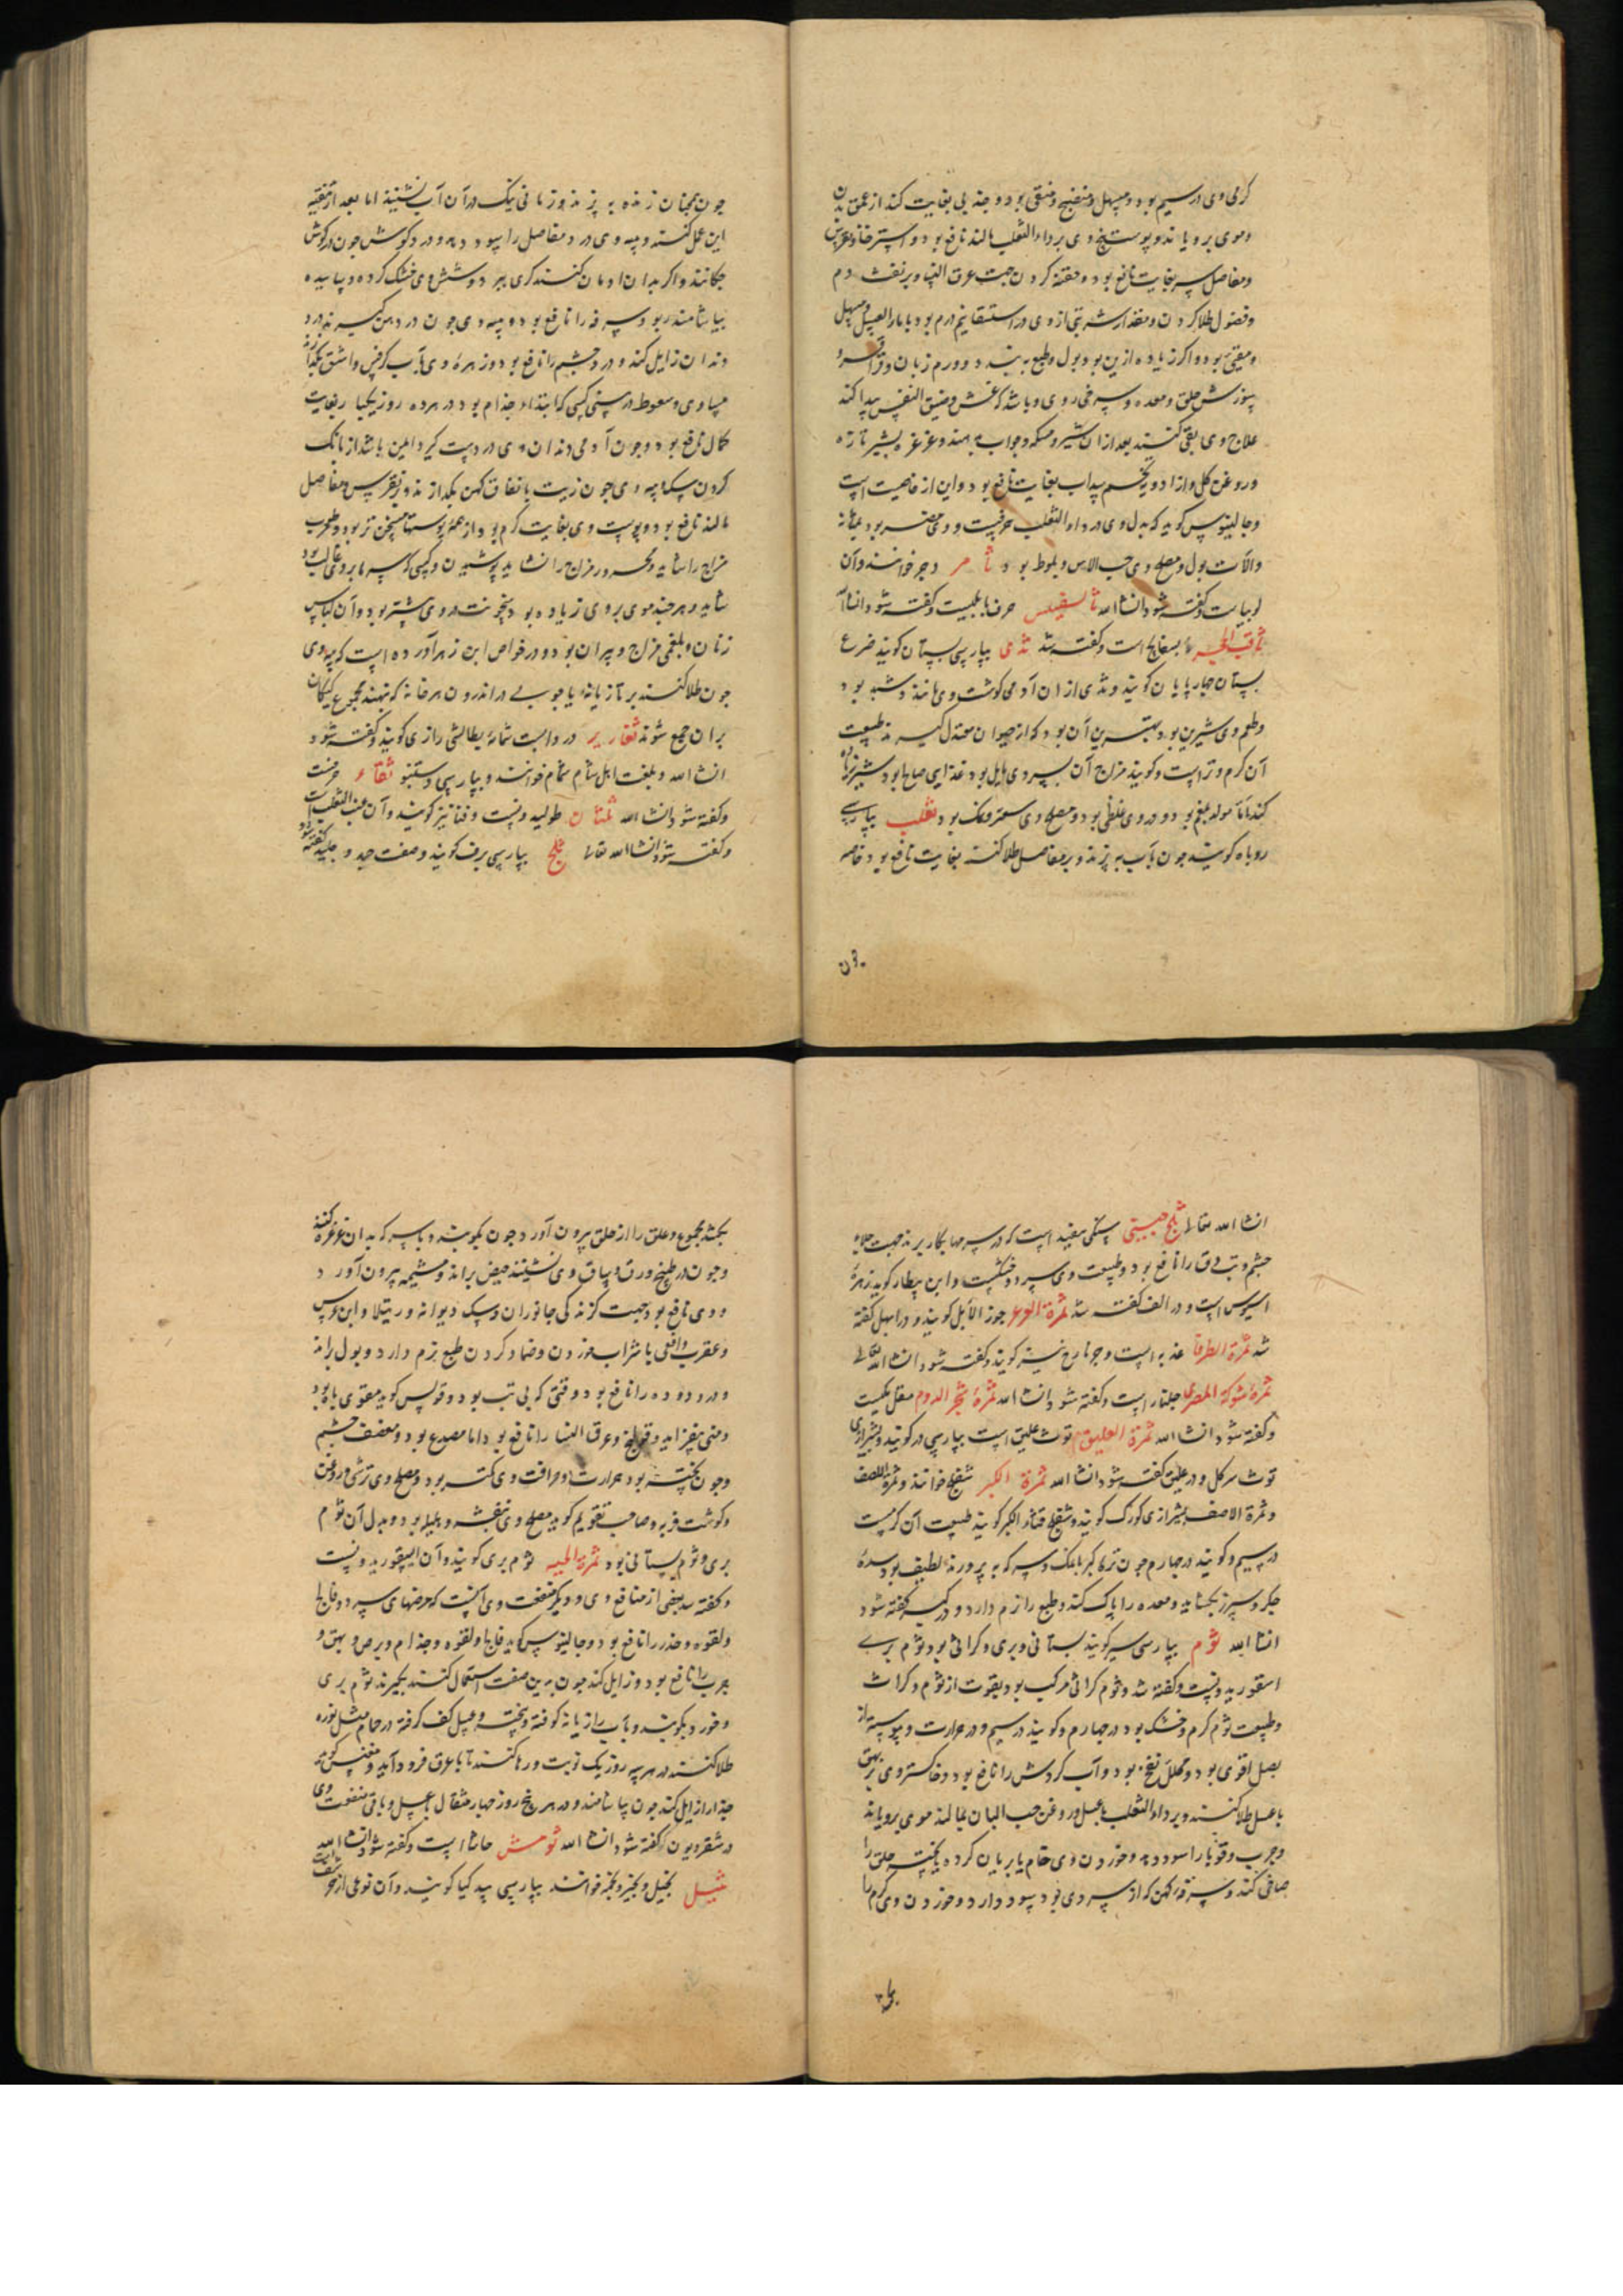 کرمی وی در سیم بود و مسهل و منضج و منقی بود و جذبی بغایت کند از عمق بدن
و موی برویاند و پوست بیخ وی بر داء الثعلب مالند نافع بود و استرخا و نقرس
و مفاصل سرد بغایت نافع بود و حقنه کردن جهت عرق النسا و بر نفث دم
و فضول طلا کردن و مقدار شربتی از وی در استسقا نیم درم بود با ماء العسل و مسهل
و مقیئ بود و اکر زیاده ازین بود بول و طبع ببندد و ورم زبان و قراقر و
سوزش حلق و معده و سرخی روی و باشد که غشی و ضیق النفس پیدا کند
علاج وی بقی کنند بعد از ان شیر و مسکه و جواب دهند و غرغره بشیر تازه
و روغن کل و از ادویه تخم سداب بغایت نافع بود و این از خاصیت است
و جالینوس کوید که بدل وی در داء الثعلب حرفست و وی مضر بود بمثانه
و آلات بول و مصلح وی حب الاس و بلوط بود ثامر دجر خوانند و آن
لوبیاست و کفته شود ان شا الله ثالسفیس حرف بابلیست و کفته شود ان شا الله
ثاقب الحجر بسفایج است و کفته شد ثدی بپارسی پستان کویند ضرع
پستان چهارپایان کویند و ثدی از ان آدمی کوشت وی مانند دشبد بود
و طعم وی شیرین بود بهترین آن بود که از حیوان معتدل کیرند طبیعت
آن کرم و تر است و کویند مزاج آن بسردی مایل بود غذای صالح بود شیر زیاده
کند اما مولد بلغم بود و در وی غلظی بود و مصلح وی سعتر و نمک بود ثعلب بپارسی
روباه کویند چون بآب بپزند و بر مفاصل طلا کنند بغایت نافع بود خاصه
چون همچنان زنده بپزند و زمانی نیک در آن آب نشینند اما بعد از تنقیه
این عمل کنند و پیه وی درد مفاصل را سود دهد و درد کوش چون در کوش
چکانند و اکر بدان ادمان کنند کری ببرد و شش وی خشک کرده و ساییده
بیاشامند ربو و سرفه را نافع بود و پیه وی چون در دهن کیرند درد
دندان زایل کند و درد چشم را نافع بود و زهره وی بآب کرفس و اشق بکدازند
مساوی و سعوط در بینی کسی که ابتداء جذام بود در هر ده روز یکبار بغایت
کمال نافع بود و چون آدمی دندان وی در دست کیرد ایمن باشد از بانک
کردن سک و پیه وی چون زیت با نفاق کهن بکدازند و بر نقرس و مفاصل
مالند نافع بود و پوست وی بغایت کرم بود از همه پوستها مسخن تر بود و مرطوب
مزاج را شاید و محرور مزاج را نشاید پوشیدن و کسی که سرما بر وی غالب بود
شاید و هرچند موی بر وی زیاده بود سخونت در وی بیشتر بود و آن لباس
زنان و بلغمی مزاج و پیران بود و در خواص ابن زهر آورده است که پیه وی
چون طلا کنند بر تازیانه یا چوبی در اندرون هر خانه که بنهند مجموع کیکان
بران جمع شوند ثغاریر در دالست شمارند طالشی رازی کویند و کفته شود
انشا الله و بلغت اهل شام ثمام خوانند و بپارسی دستنبو ثفاء حرفست
و کفته شود انشا الله ثلثان طولیدونست و فنا نیز کویند و آن عنب الثعلب است
و کفته شود انشا الله تعالی ثلج بپارسی برف کویند و صفت جمد و جلید کفته شود
انشا الله تعالی ثلج چینی سنکی سفید است که در سرمها بکار برند جهت جلاء
چشم و تب دق را نافع بود و طبیعت وی سرد و خشکست و ابن بیطار کوید زهرهٔ
اسیوس است و در الف کفته شد ثمرة العرعر جوز الابهل کویند و در ابهل کفته
شد ثمرة الطرفا عذبه است و جوز مازج نیز کویند و کفته شود انشا الله تعالی
ثمرة شوکة المصری جلنار است و کفته شود انشا الله ثمرة شجر الدوم مقل مکیست
و کفته شود انشا الله ثمرة العلیق توث علیق است بپارسی در کویند و بشیرازی
توث سرکل و در علیق کفته شود انشا الله ثمرة الکبر شفلح خوانند و ثمرة اللصف
و ثمرة الاصف بشیرازی کورک کویند و شفلح قثاء الکبر کویند طبیعت آن کرمست
در سیم و کویند در چهارم چون ترکاکبر با نمک و سرکه بپرورند لطیف بود سدهٔ
جکر و سپرز بکشاید و معده را پاک کند و طبع را نرم دارد و در کبر کفته شود
انشا الله ثوم بپارسی سیر کویند بستانی و بری و کراثی بود ثوم بری
اسقوردیونست و کفته شد و ثوم کراثی مرکب بود بقوت از ثوم و کراث
و طبیعت ثوم کرم و خشک بود در چهارم و کویند در سیم و در حرارت و یبوست از
بصل اقوی بود و محلل نفخ بود و آب کردش را نافع بود و خاکستر وی بر بهق
با عسل طلا کنند و بر داء الثعلب با عسل و روغن حب البان بمالند موی برویاند
و جرب و قوبا را سود دهد و خوردن وی خام یا بریان کرده یا پخته حلق را
صافی کند و سرفهٔ کهن که از سردی بود سود دارد و خوردن وی کرم را
بکشد مجموع و علق را از حلق بیرون آورد چون بکوبند و با سرکه بدان غرغره کنند
و چون در طبیخ ورق و ساق وی نشینند حیض براند و مشیمه بیرون آورد
و وی نافع بود جهت کزندکی جانوران و سک دیوانه و رتیلا و ابن عرس
و عقرب و افعی با شراب خوردن و ضماد کردن طبع نرم دارد و بول براند
و درد روده را نافع بود وقتی که بی تب بود و قولس کوید مقوی باه بود
و منی بیفزاید و قولنج و عرق النسا را نافع بود اما مصدع بود و مضعف چشم
و چون پخته بود حرارت و حرافت وی کمتر بود و مصلح وی ترشی و روغن
و کوشت فربه و صاحب تقویم کوید مصلح وی بنفشه و هلیله بود و بدل آن ثوم
بری و ثوم بستانی بود ثمرة الحیه ثوم بری کویند و آن اسقوردیونست
و کفته شد بعضی از منافع وی و دیکر منفعت وی آنست که مرضهای سرد و فالج
و لقوه و خدر را نافع بود و جالینوس کوید فالج و لقوه و جذام و برص و بهق و
جرب را نافع بود و زایل کند چون بدین صفت استعمال کنند بکیرند ثوم بری
و خورد بکوبند و بآب رازیانه کوفته و پخته و عسل کف کرفته در حمام مثل نوره
طلا کنند در هر سه روز یک نوبت و رها کنند تا با عرق فرود آید و مفلس کوید
جذام را زایل کند چون بیاشامند و در هر پنج روز چهار مثقال با عسل و باقی منفعت وی
در شقردیون کفته شود انشا الله ثومش حاشا است و کفته شود انشا الله
ثیل نجیل و نجیر و نجمه خوانند بپارسی بید کیا کویند و آن نوعی از